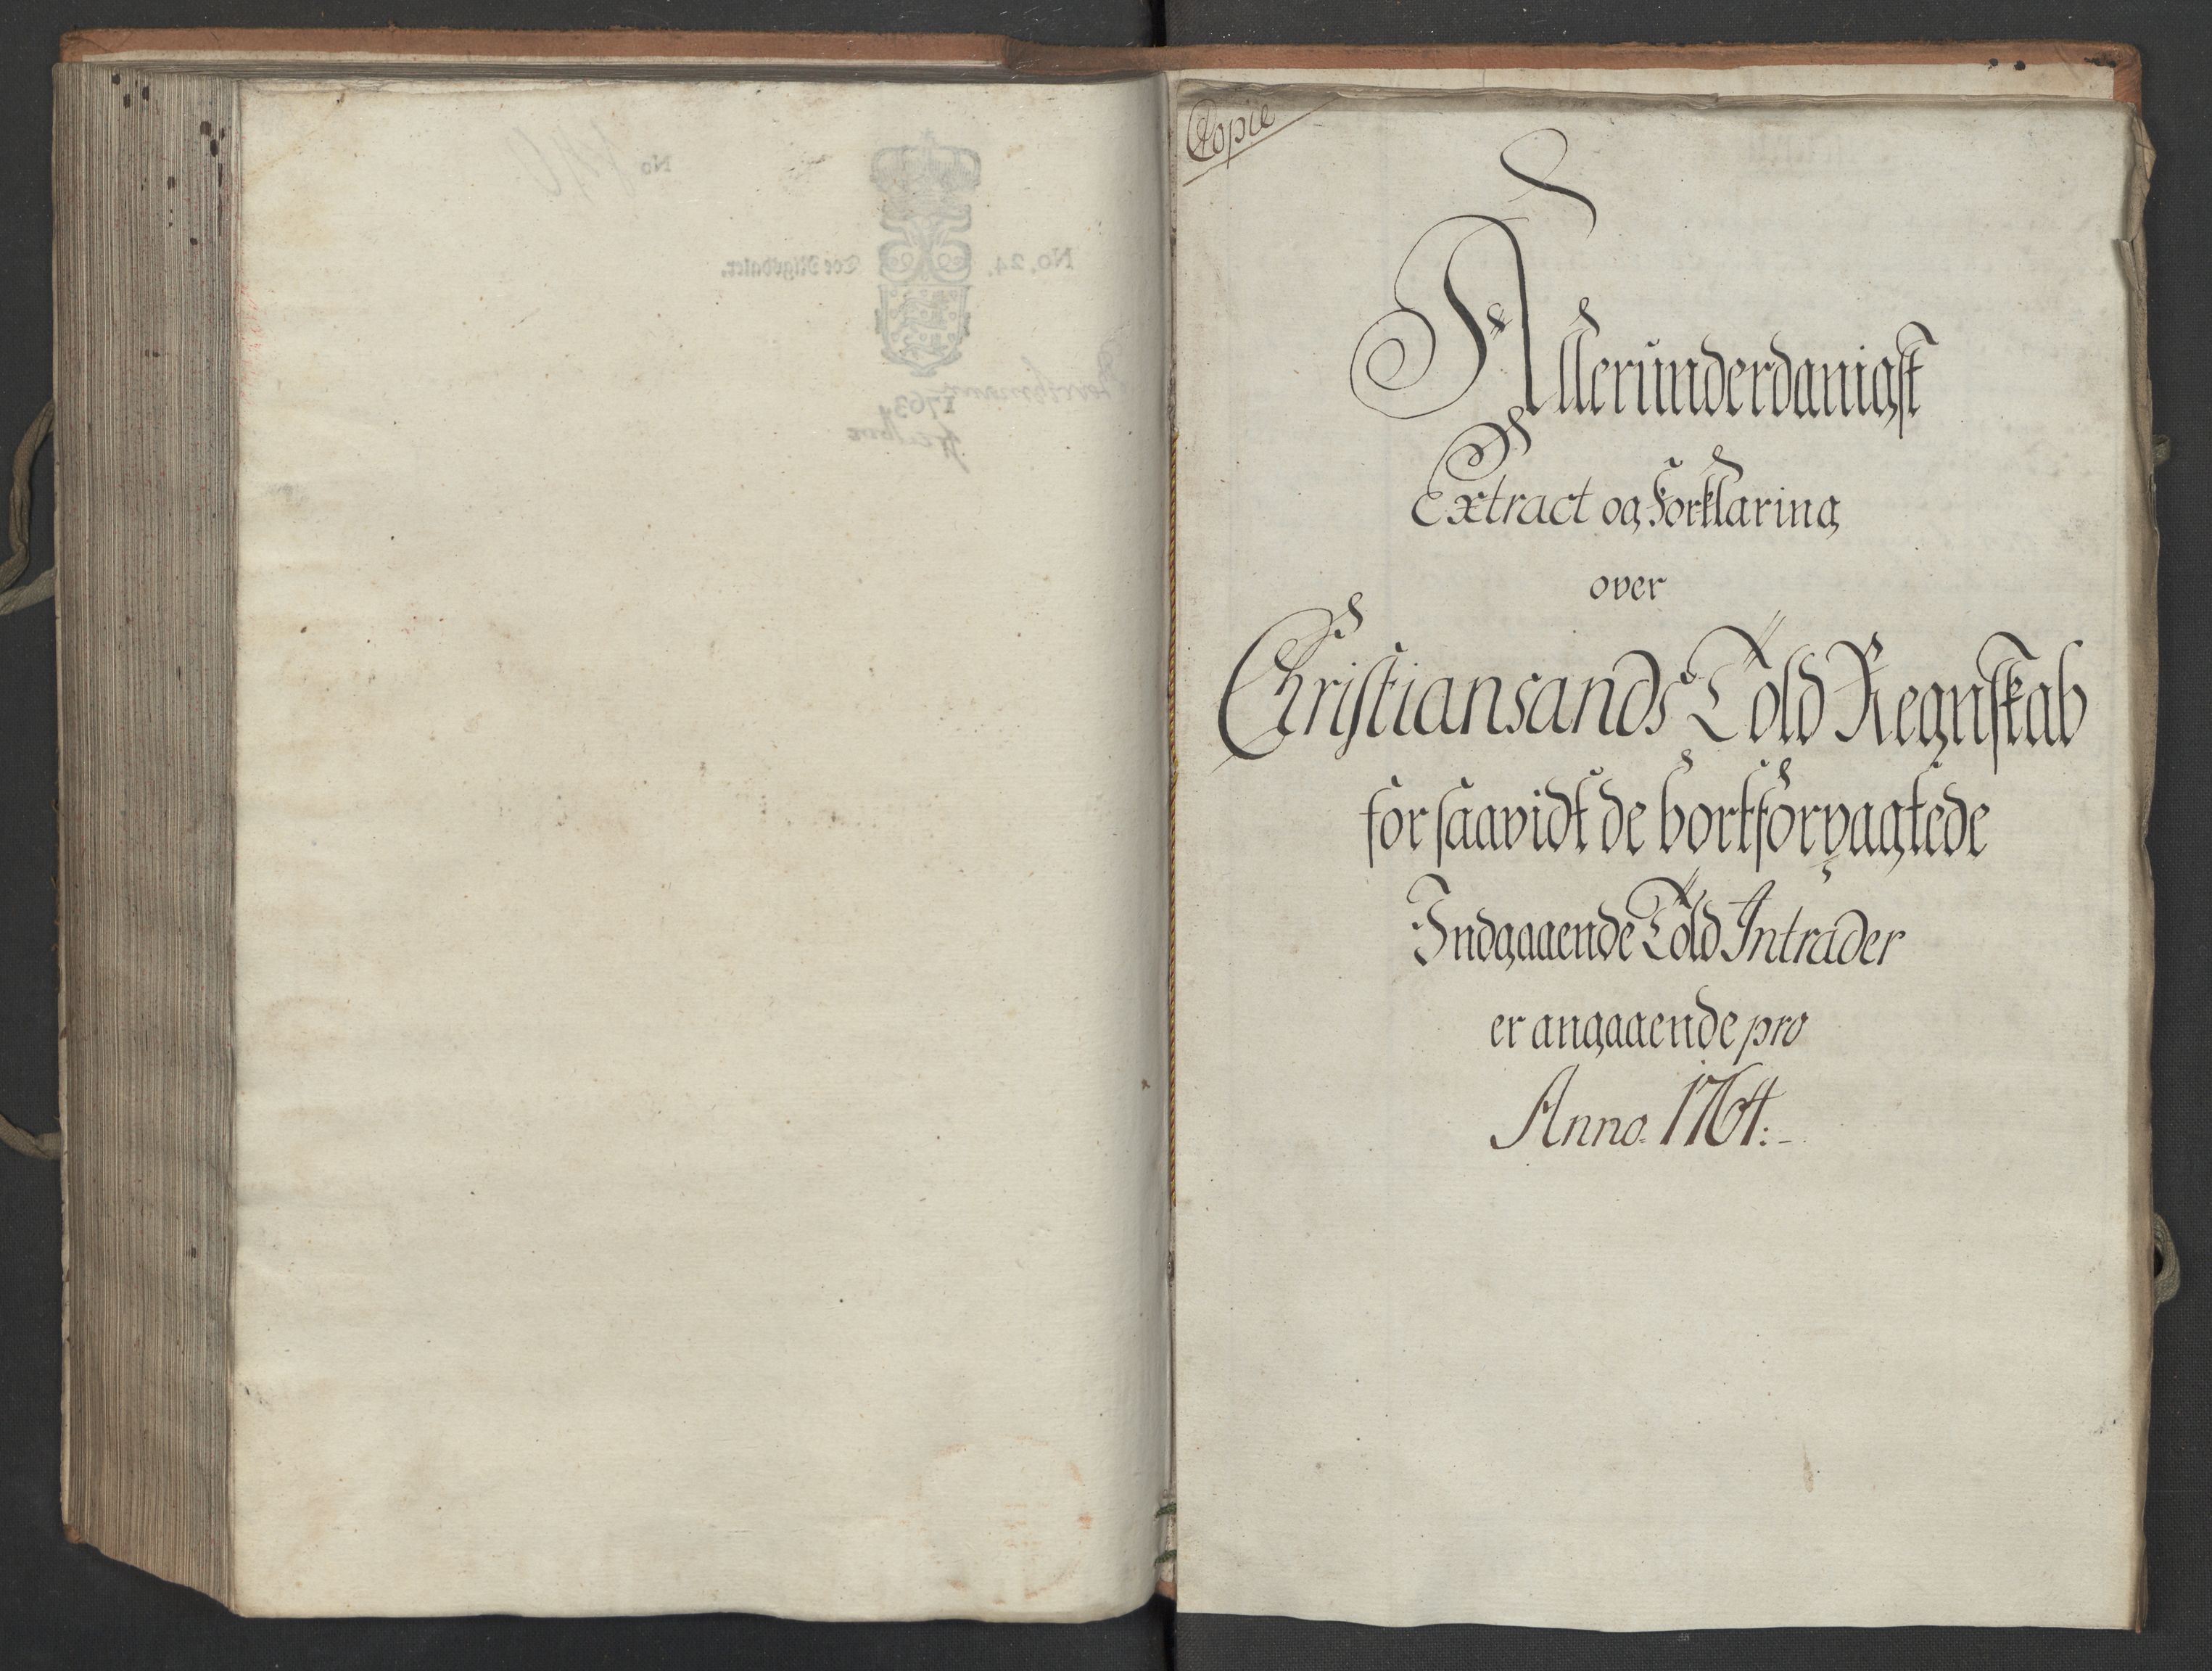 No
No. 24. Toe Rigsdaler.
1763
Copie
Allerunderdanigst
Extract og Forklaring
over
Christiansands Told Regnskab
forsaavidt de bortforpagtede
Indgaaende Told Intrader
er angaaende pro
Anno. 1764:-